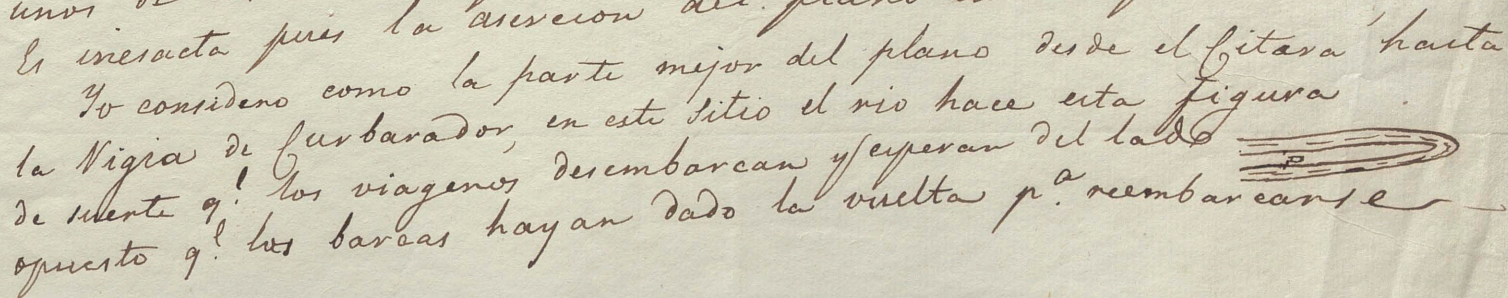 unos de
Es inesacta pues la asercion del plano
Yo considero como la parte mejor del plano desde el Citara hasta
la Vigia de Curbarador, en este sitio el rio hace esta figura
de suerte q.e los viageros desembarcan y esperan del lado
P
opuesto q.e las barcas hayan dado la vuelta p.a reembarcarse